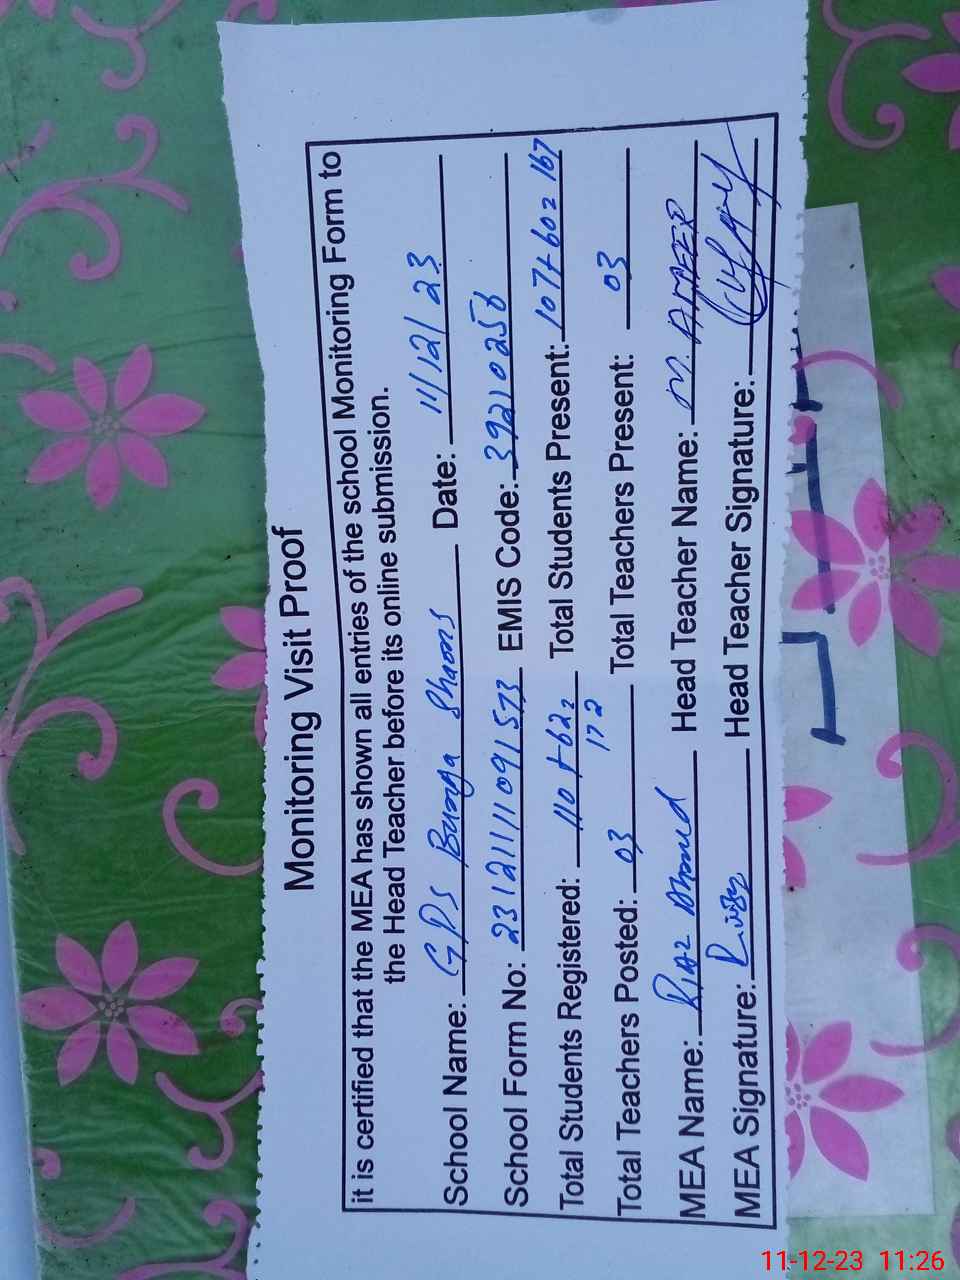 Monitoring Visit Proof
it is certified that the MEA has shown all entries of the school Monitoring Form to
the Head Teacher before its online submission.
School Name: GPS Bunga Shaoni Date: 11/12/23
School Form No: 23121111091573 EMIS Code: 39210256
Total Students Registered: 110+62= Total Students Present: 107+60=167
172
Total Teachers Posted: 03 Total Teachers Present: 03
MEA Name: Riaz Ahmed Head Teacher Name: M. AMEER
MEA Signature: Head Teacher Signature:
11-12-23 11:26